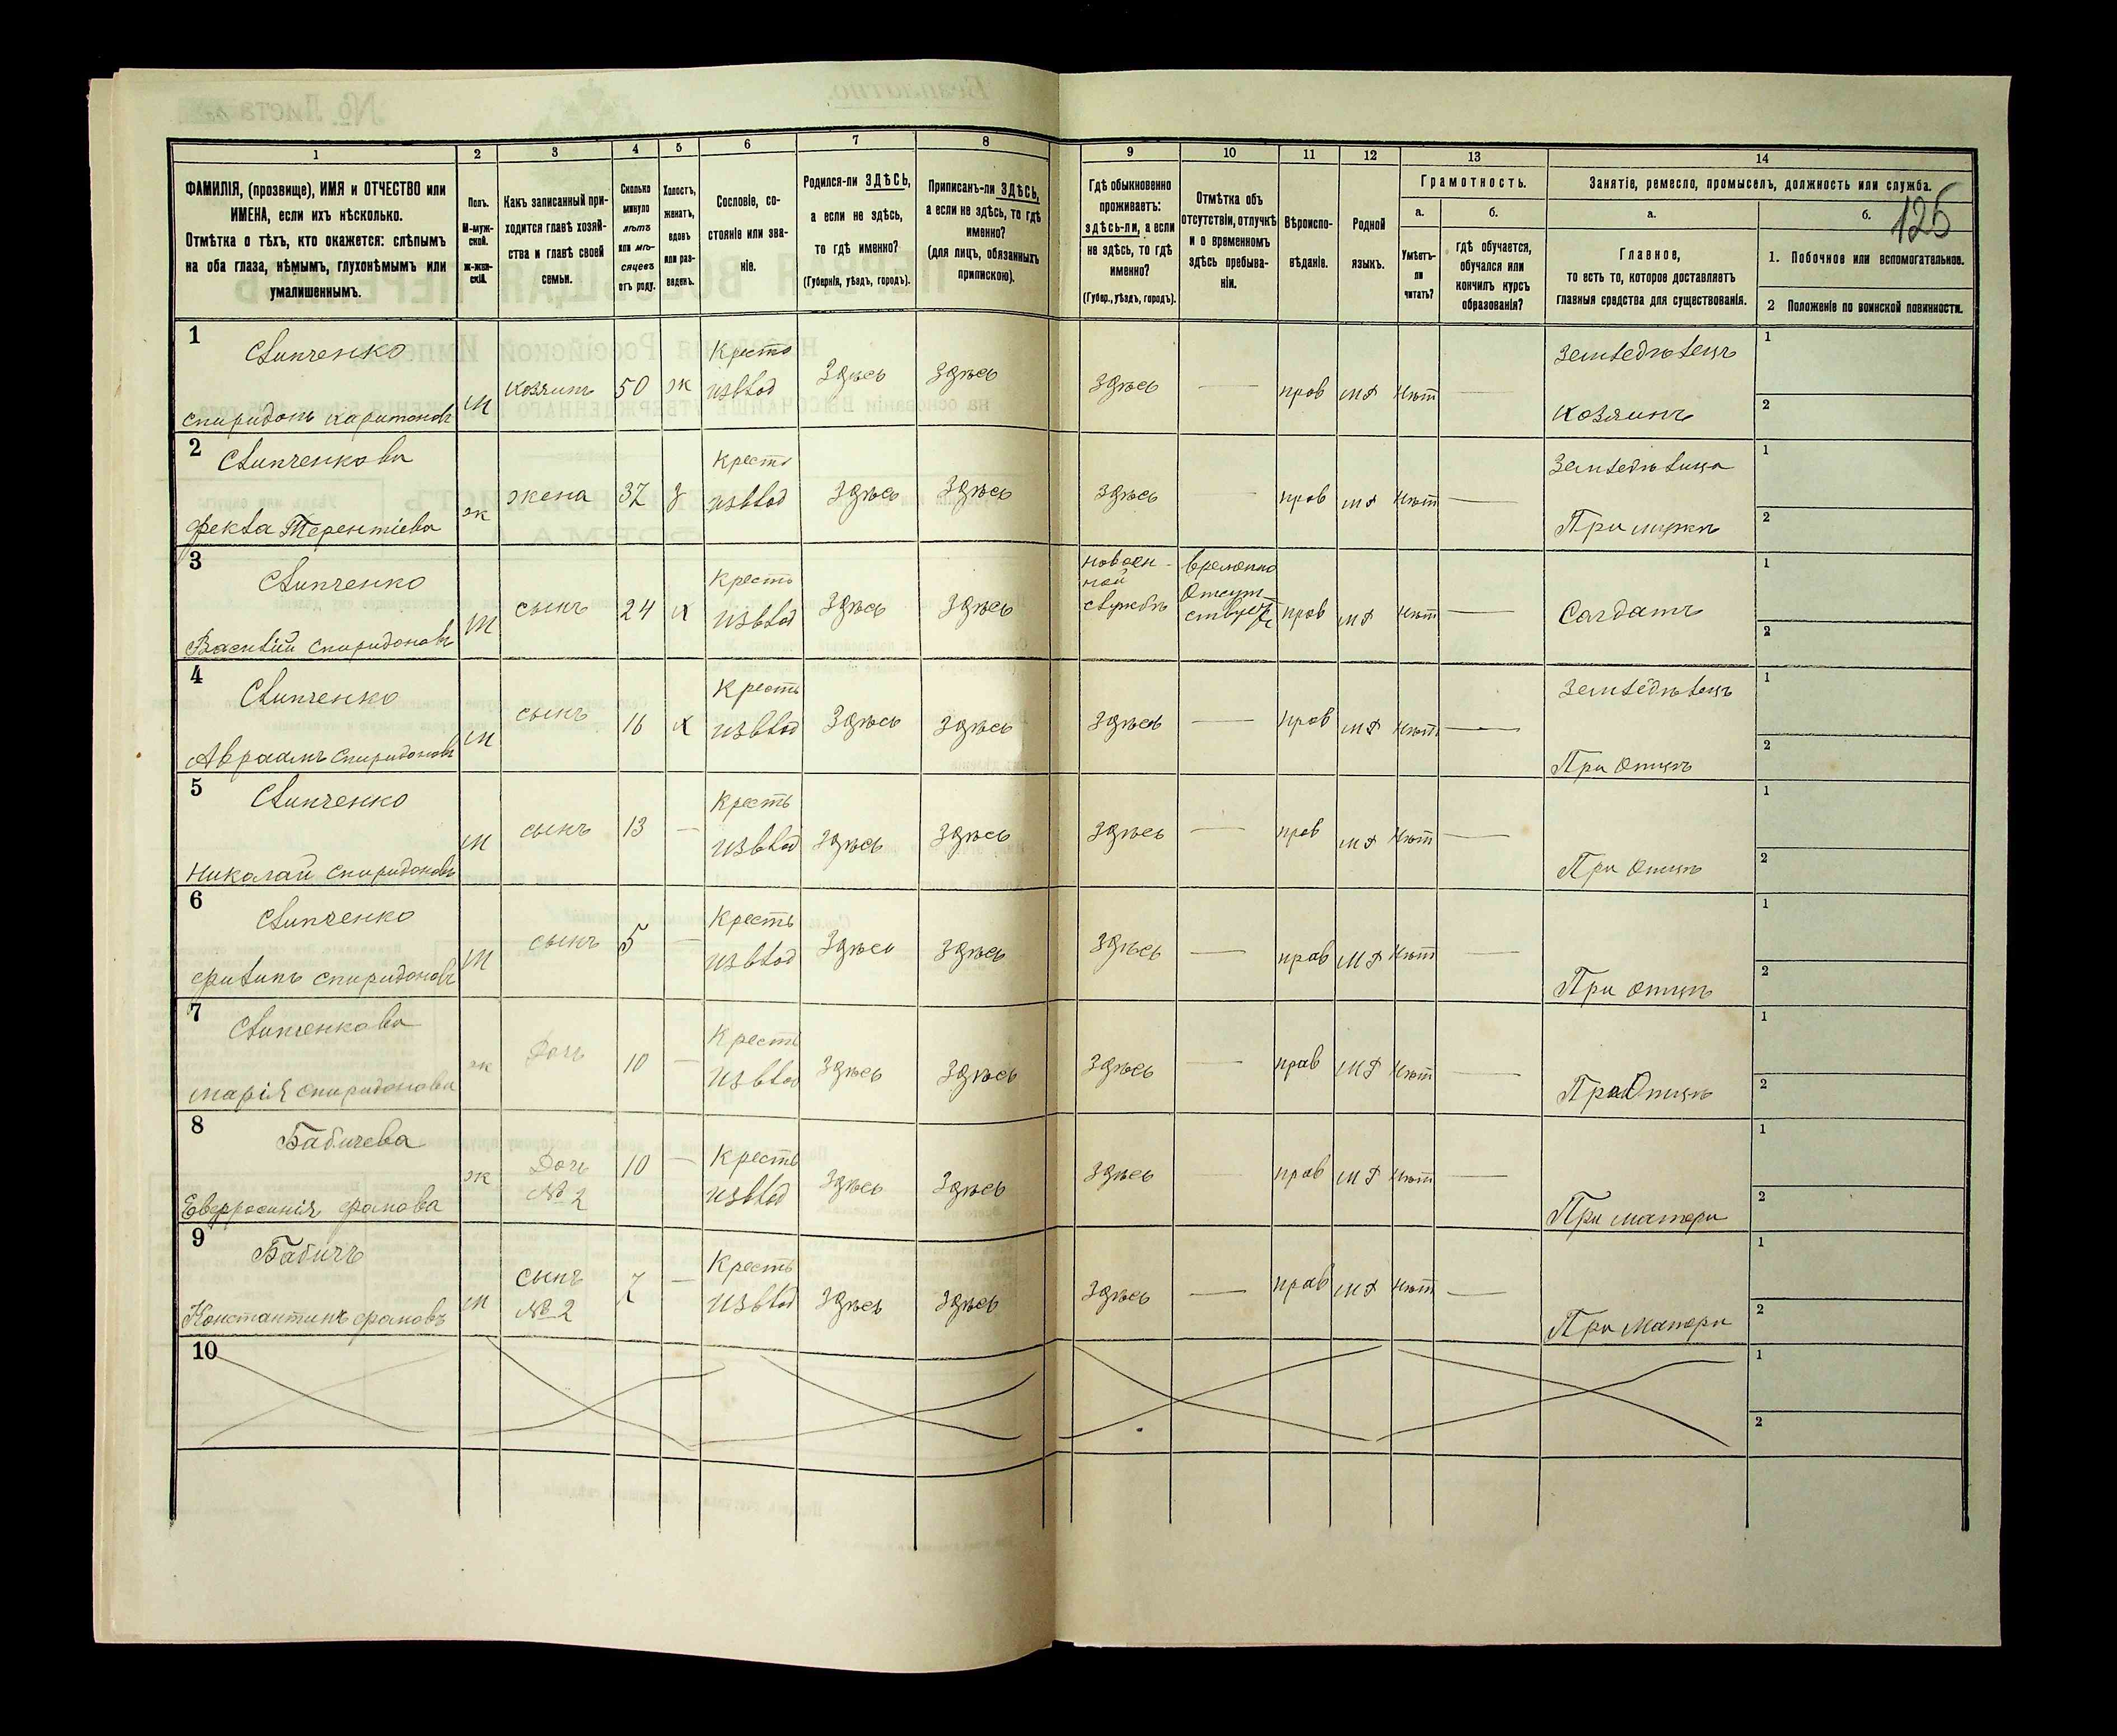 1
2
3
4
5
6
7
8
9
10
11
12
13
14
ФАМИЛІЯ, (прозвище), ИМЯ и ОТЧЕСТВО или
ИМЕНА, если ихъ нѣсколько.
Отмѣтка о тѣхъ, кто окажется: слѣпымъ
на оба глаза, нѣмымъ, глухонѣмымъ или
умалишеннымъ.
Полъ.
М-муж-
ской.
Ж-жен-
скій.
Какъ записанный при-
ходится главѣ хозяй-
ства и главѣ своей
семьи.
Сколько
минуло
лѣтъ
или мѣ-
сяцевъ
отъ роду.
Холостъ,
женатъ,
вдовъ
или раз-
веденъ.
Сословіе, со-
стояніе или зва-
ніе.
Родился-ли ЗДѢСЬ,
а если не здѣсь,
то гдѣ именно?
(Губернія, уѣздъ, городъ).
Приписанъ-ли ЗДѢСЬ,
а если не здѣсь, то гдѣ
именно?
(для лицъ, обязанныхъ
припискою).
Гдѣ обыкновенно
проживаетъ:
здѣсь-ли, а если
не здѣсь, то гдѣ
именно?
(Губер., уѣздъ, городъ).
Отмѣтка объ
отсутствіи, отлучкѣ
и о временномъ
здѣсь пребыва-
ніи.
Вѣроиспо-
вѣданіе.
Родной
языкъ.
Грамотность.
а.
Умѣетъ-
ли
читать?
б.
гдѣ обучается,
обучался или
кончилъ курсъ
образованія?
Занятіе, ремесло, промыселъ, должность или служба.
а.
Главное,
то есть то, которое доставляетъ
главныя средства для существованія.
б.
126
1. Побочное или вспомогательное.
2 Положеніе по воинской повинности.
1
Слипченко
спиридонъ каритоновъ
м
козяинъ
50
ж
Крестъ
извлад
Здѣсь
Здѣсь
Здѣсь
—
прав
м р
Нѣт
—
Земледѣлецъ
козяинъ
1
2
2
Слипченкова
Фекла Терентіева
ж
жена
37
з
Крестъ
извлад
Здѣсь
Здѣсь
Здѣсь
—
прав
м р
Нѣт
—
Земледѣлица
При мужѣ
1
2
3
Слипченко
Василій Спиридоновъ
м
сынъ
24
х
Крестъ
извлад
Здѣсь
Здѣсь
новоен-
ной
службѣ
временно
Отсут-
ствуетъ
прав
м р
Нѣт
—
Салдатъ
1
2
4
Слипченко
Авраамъ Спиридоновъ
м
сынъ
16
х
Крестъ
извлад
Здѣсь
Здѣсь
Здѣсь
—
прав
м р
Нѣт
—
Земледѣлецъ
При Отцѣ
1
2
5
Слипченко
Николай Спиридоновъ
м
сынъ
13
—
Крестъ
извлад
Здѣсь
Здѣсь
Здѣсь
—
прав
м р
Нѣт
—
При Отцѣ
1
2
6
Слипченко
Филипъ Спиридоновъ
м
сынъ
5
—
Крестъ
извлад
Здѣсь
Здѣсь
Здѣсь
—
прав
м р
Нѣт
—
При отцѣ
1
2
7
Слипченкова
марія спиридонова
ж
Дочь
10
—
Крестъ
извлад
Здѣсь
Здѣсь
Здѣсь
—
прав
м р
Нѣт
—
При Отцѣ
1
2
8
Бабичева
Евфросинія Фамова
ж
Дочь
№ 2
10
—
Крестъ
извлад
Здѣсь
Здѣсь
Здѣсь
—
прав
м р
Нѣт
—
При матери
1
2
9
Бабичъ
Константинъ Фамовъ
м
сынъ
№ 2
7
—
Крестъ
извлад
Здѣсь
Здѣсь
Здѣсь
—
прав
м р
Нѣт
—
При Матери
1
2
10
1
2